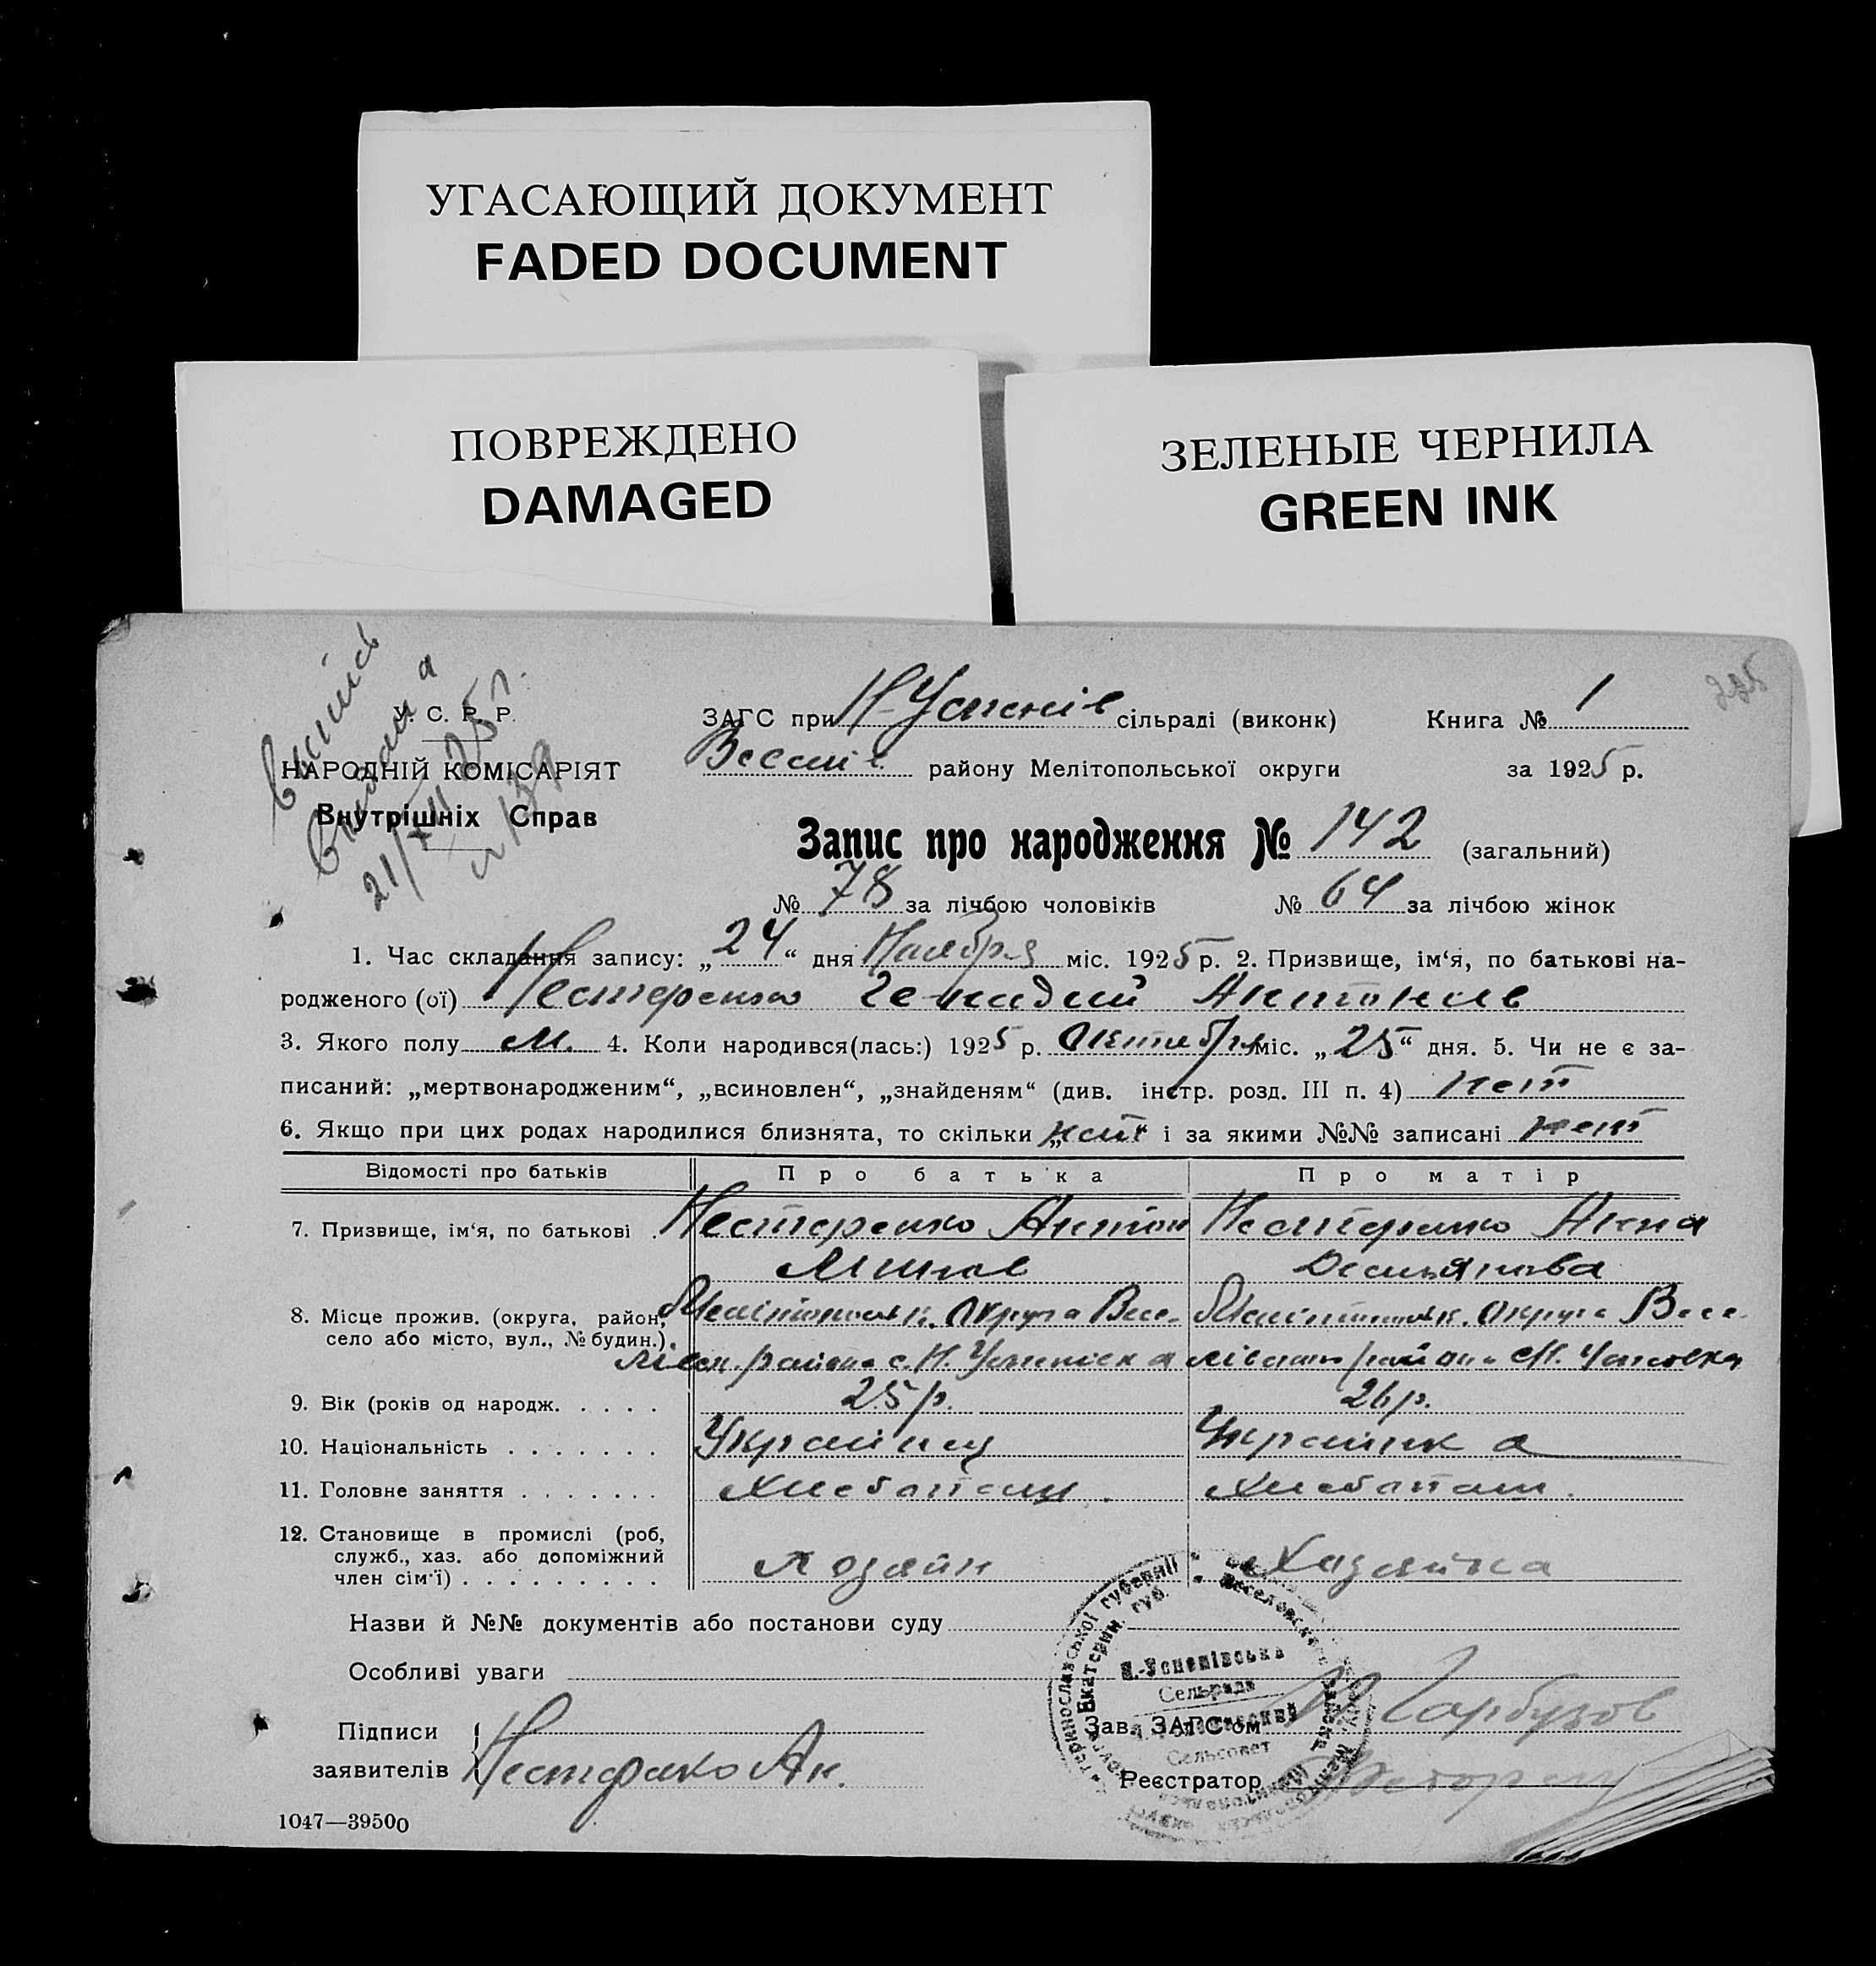 УГАСАЮЩИЙ ДОКУМЕНТ
FADED DOCUMENT
ПОВРЕЖДЕНО
DAMAGED
ЗЕЛЕНЫЕ ЧЕРНИЛА
GREEN INK
225
21/XII 25 г.
№ 139
У. С. Р. Р.
НАРОДНІЙ КОМІСАРІЯТ
Внутрішніх Справ
ЗАГС при Н-Успенів сільраді (виконк) Книга № 1
Весел району Мелітопольської округи за 1925 р.
Запис про народження № 142 (загальний)
№ 78 за лічбою чоловіків № 64 за лічбою жінок
1. Час складання запису: „24“ дня Ноября міс. 1925 р. 2. Призвище, ім‘я, по батькові на-
родженого (ої) Нестеренко Генадий Антонов
3. Якого полу м. 4. Коли народився(лась:) 1925 р. Октябр міс. „25“ дня. 5. Чи не є за-
писаний: „мертвонародженим“, „всиновлен“, „знайденям“ (див. інстр. розд. III п. 4) нет
6. Якщо при цих родах народилися близнята, то скільки „нет“ і за якими №№ записані нет
Відомості про батьків Про батька Про матір
7. Призвище, ім‘я, по батькові Нестеренко Антон Нестеренко Анна
8. Місце прожив. (округа, район, Мелітопольськ. Округа Весе- Мелітопольськ. Округа Весе-
село або місто, вул., № будин.). района с. Н. Успенівка района с Н. Успеновка
9. Вік (років од народж. . . . . 25 р. 26 р.
10. Національність . . . . . . . Українец Українка
11. Головне заняття . . . . . . . Хлебопашец. Хлебопаш.
12. Становище в промислі (роб,
служб., хаз. або допоміжний
член сім‘ї) . . . . . . . . . Хозяин Хазяйка
Назви й №№ документів або постанови суду
Особливі уваги
Н.-Успенівська
Сельрада
Сельсовет
Підписи
заявителів Нестеренко Ан.
Зав. ЗАГС‘ом Гарбузов
Реєстратор
1047—39500